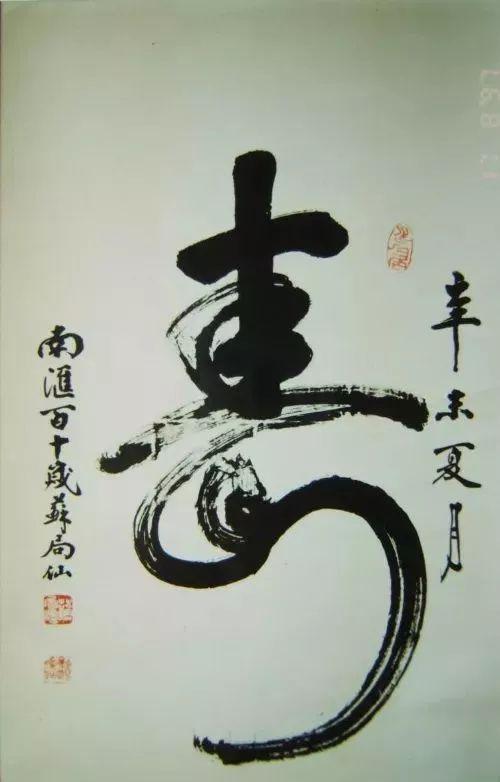 辛未夏月
壽
南滙百十歲蘇局仙